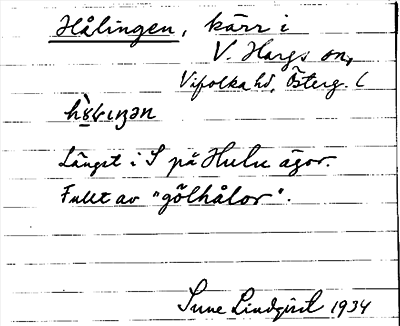 Hålingen, kärr i
V. Hargs sn,
Vifolka hd, Österg. l
Längst i S på Hulu ägor.
Fullt av "gölhålor".
Sune Lindqvist 1934